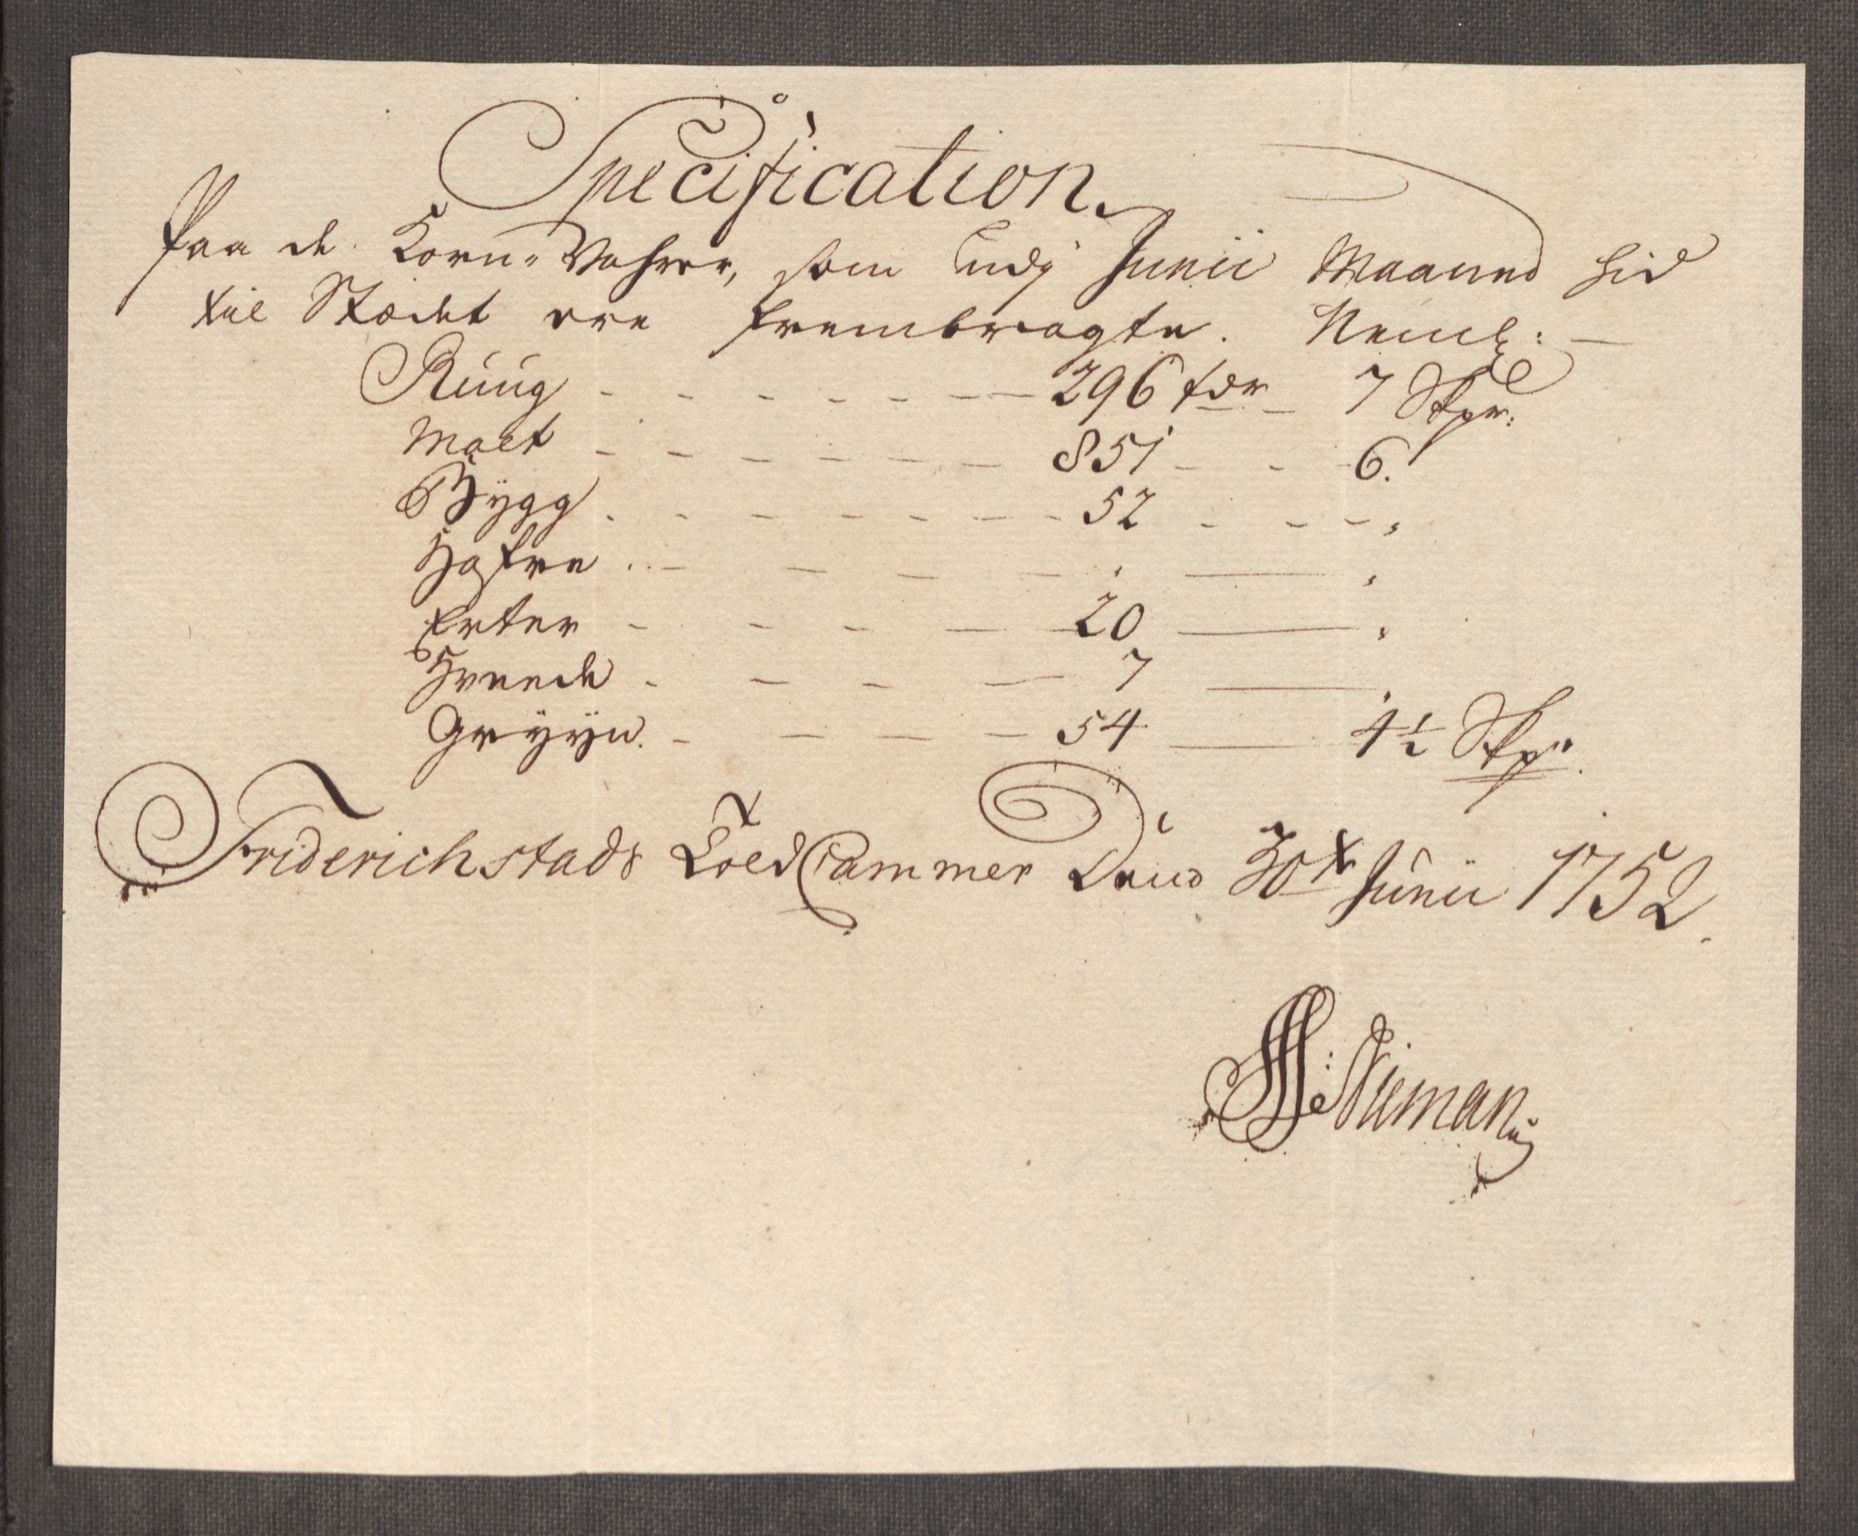 Specification
Paa de Korn-Vahrer, som udj Junii Maaned hid
til Stædet ere frembragte. Neml:
Rüüg - - - - - - - 296 tdr - 7 Skpr:
Malt - - - - - - - 851 - - 6.
Bÿgg - - - - - - - 52 - - - "
Hafre - - - - - " — "
Erter - - - - - 20 — "
Hveede - - - - 7 — "
Grÿÿn - - - - - 54 — 4½ Skpr.
Friderichstads Told Cammer Den 30te Junii 1752.
Nieman